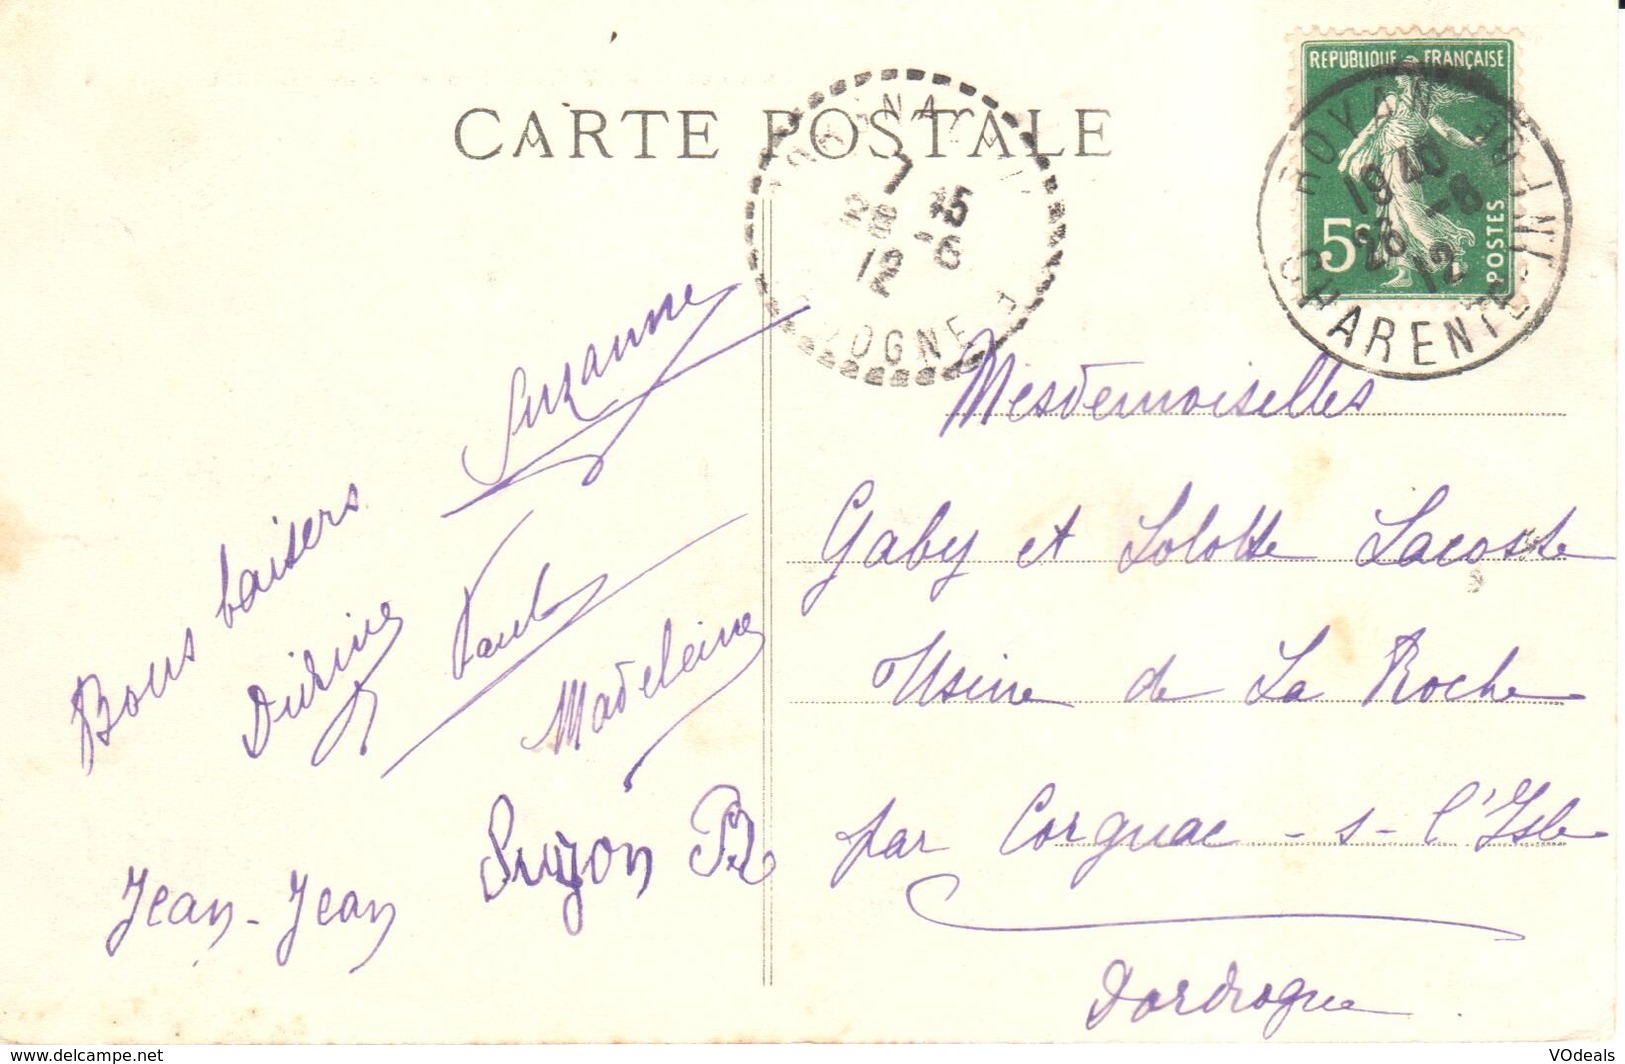 CARTE POSTALE
REPUBLIQUE FRANÇAISE
5c
POSTES
ROYAN
19 40
26 -8
12
CHARENTE-INFRE
7 45
28 -8
12
Suzanne
Bons baisers
Paul
Madeleine
Suzon B
Jean-Jean
Mesdemoiselles
Gaby et Lolotte Lacoste
Usine de La Roche
par Corgnac-s-l'Isle
Dordogne
www.delcampe.net
VOdeals